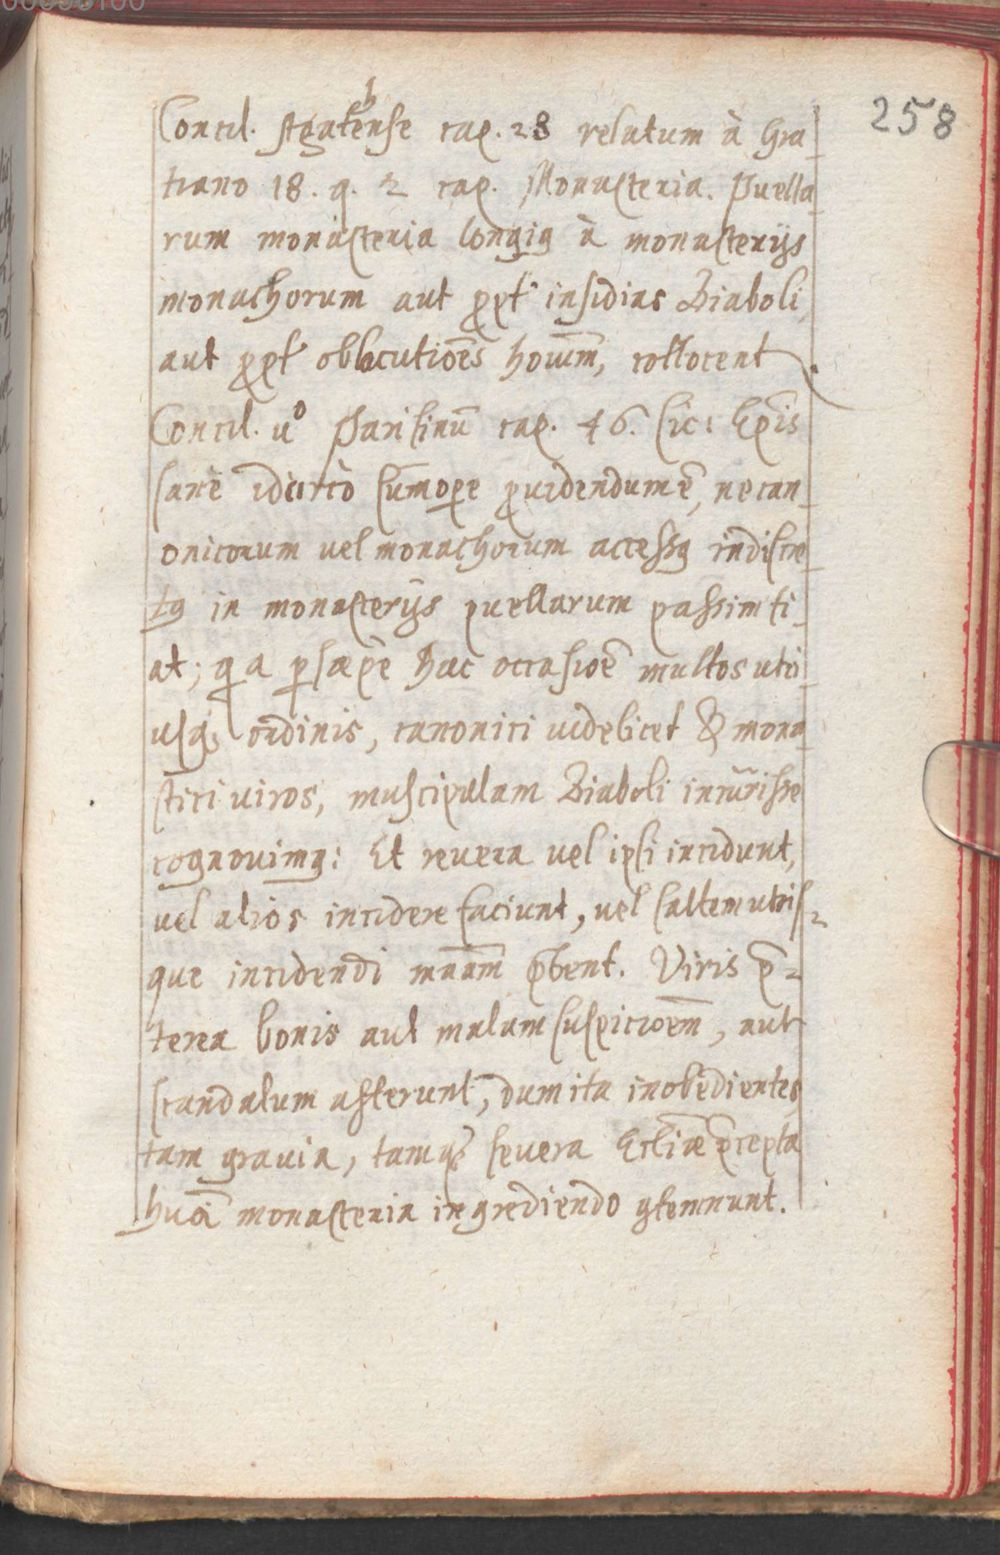 258
Concil. Agatense cap. 28 relatum à Gra
tiano 18. q. 2 cap. Monasteria. Puella
rum monasteria longiꝰ à monasterijs
monachorum aut ꝓpt' insidias Diaboli,
aut ꝓpt' oblocutiões hoīum, collocent
Concil. uº Parisinū cap. 46. sic: Ep̄is
sanè idcircò sūmopere ꝓuidendum ē, ne can
onicorum vel monachorum accessꝰ indiscre
tꝰ in monasterijs puellarum passim fi
at; qꝛa ꝑsæpe hac occasioē multos utri
usqꝫ ordinis, canonici uidelicet & mona
stici uiros, muscipulam Diaboli incurrisse
cognouimꝰ: Et reuera uel ipsi incidunt,
uel alios incidere faciunt, uel saltem utris
que incidendi māam p̄bent. Viris p̄
terea bonis aut malam suspicioēm, aut
scandalum afferunt, dum ita inobedientes
tam grauia, tamqꝫ seuera Eccliæ p̄cepta
huōi monasteria ingrediendo ꝯtemnunt.